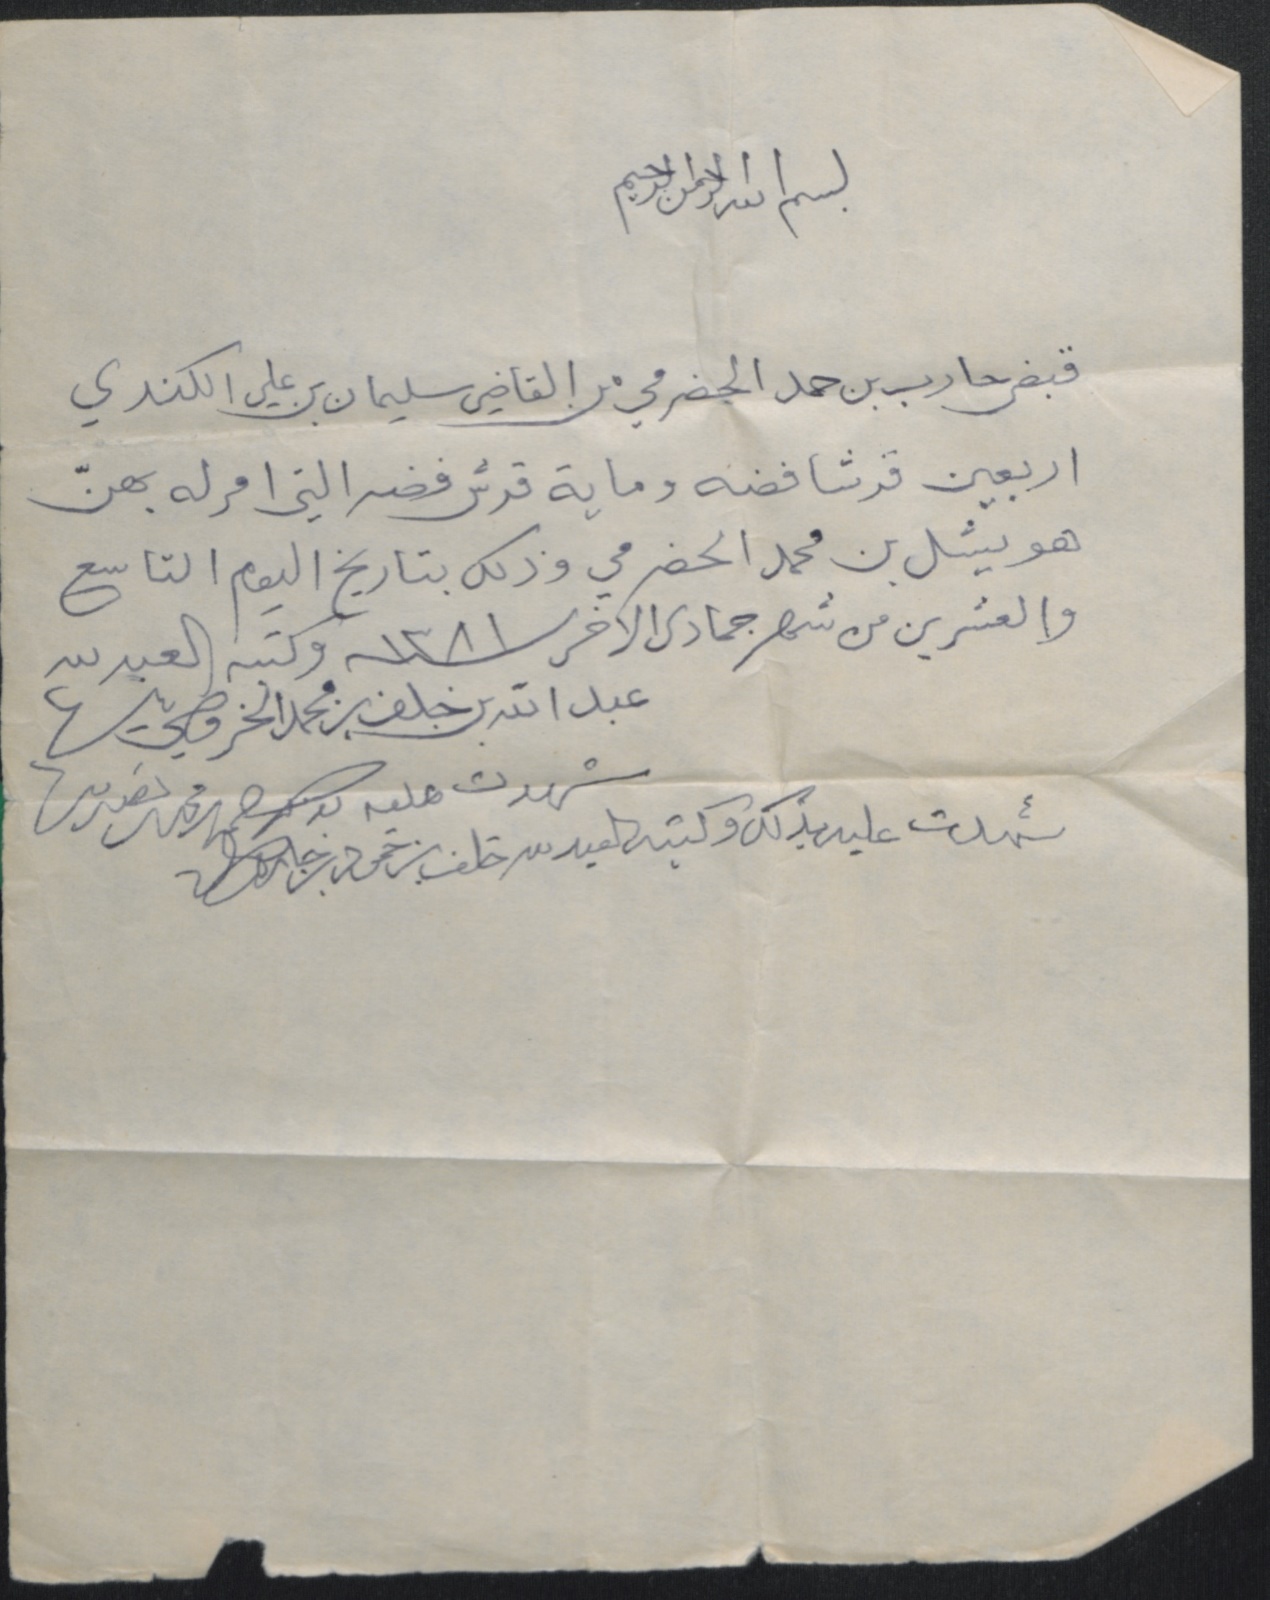 بسم الله الرحمن الرحيم
قبض حارب بن حمد الحضرمي من القاضي سليمان بن علي الكندي
اربعين قرشا فضه وماية قرش فضه التي امر له بهنّ
هو بيشل بن محمد الحضرمي وذلك بتاريخ اليوم التاسع
والعشرين من شهر جمادى الاخر سنة ١٣٨١ وكتبه العبد لله
عبد الله بن خلف بن محمد الخروصي بيده
شهدت عليه بذلك
شهدت عليه بذلك وكتبه العبد لله خلف بن